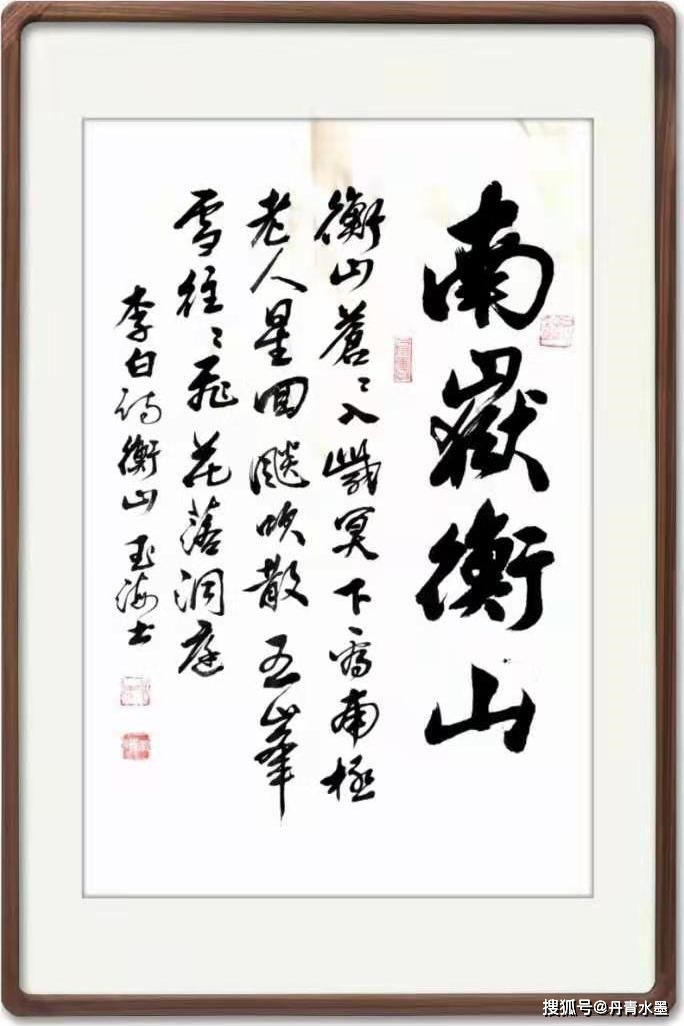 南嶽衡山
衡山蒼〻入紫冥下看南極
老人星回飇吹散五峯
雪往〻飛花落洞庭
李白诗衡山 玉海书
搜狐号@丹青水墨